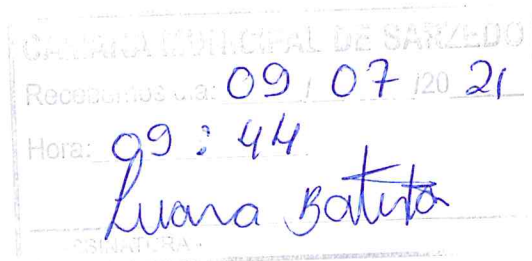 CÂMARA MUNICIPAL DE SARZEDO
Recebemos dia: 09 / 07 /20 21
Hora: 09 : 44
Luana Batista
ASSINATURA